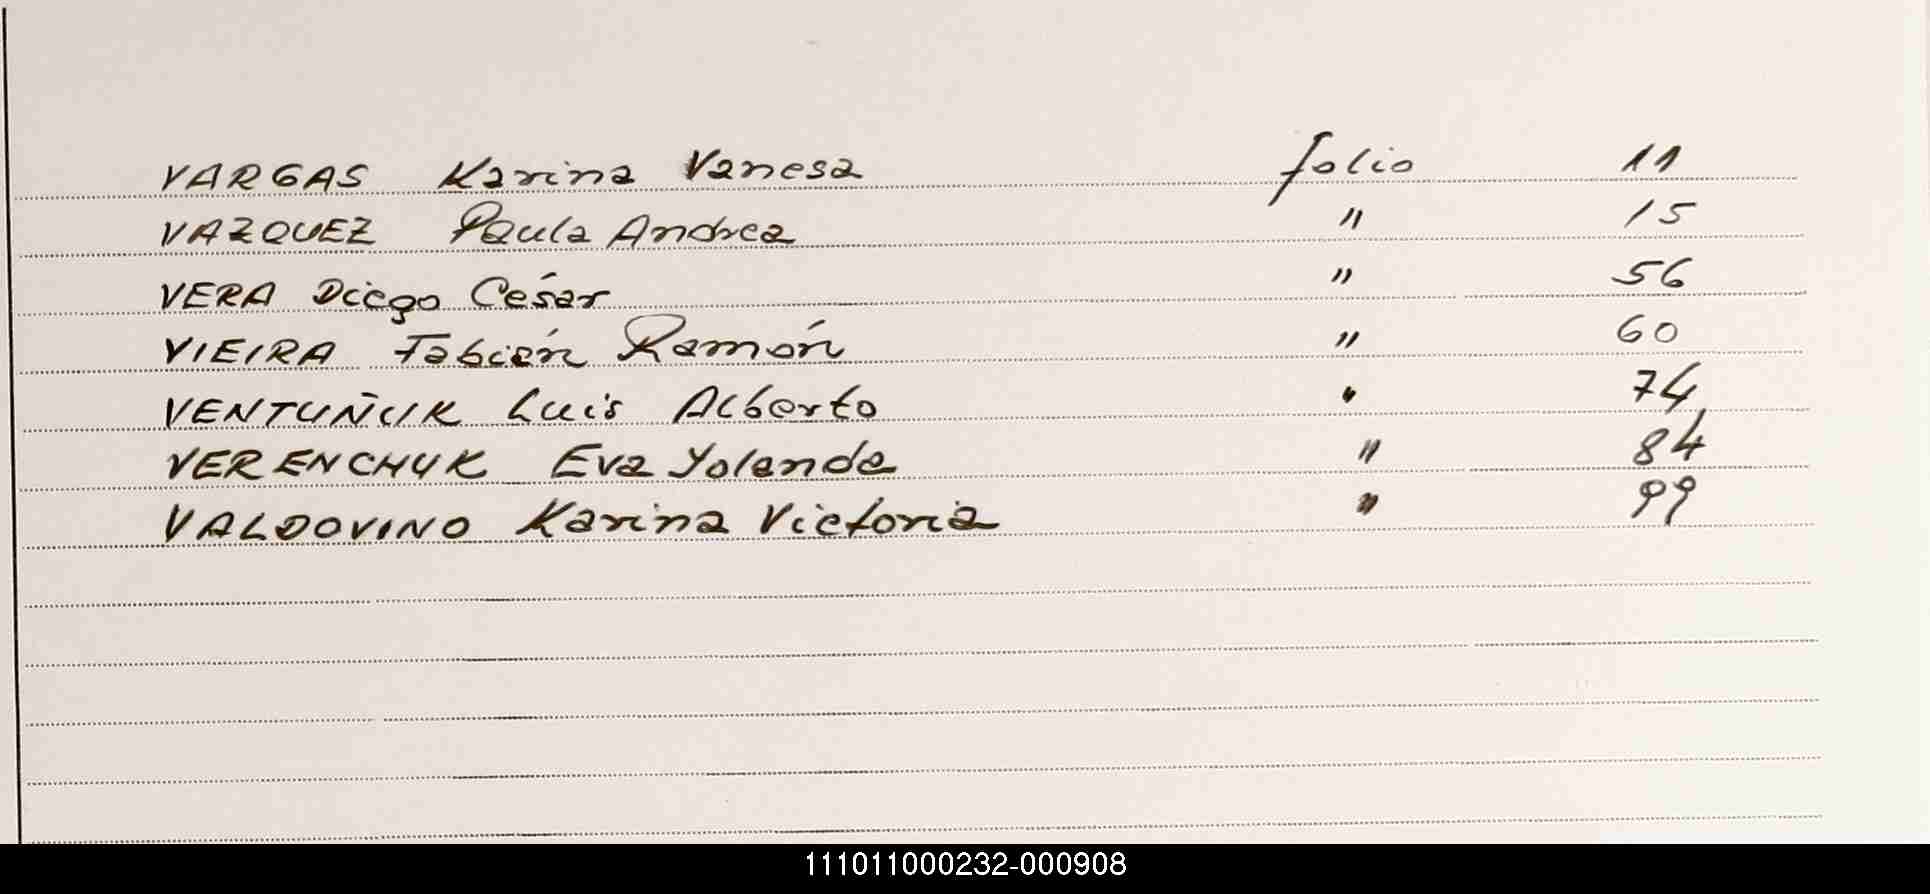 VARGAS Karina Vanesa folio 11
VAZQUEZ Paula Andrea " 15
VERA Diego César " 56
VIEIRA Fabián Ramón " 60
VENTUÑUK Luis Alberto " 74
VERENCHUK Eva Yolanda " 84
VALDOVINO Karina Victoria " 99
111011000232-000908